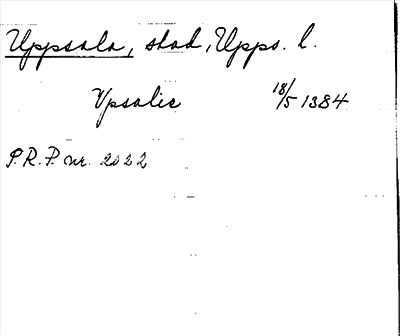 Uppsala, stad, Upps. l.
Vpsalie 18/5 1384
P.R.P. nr. 2022